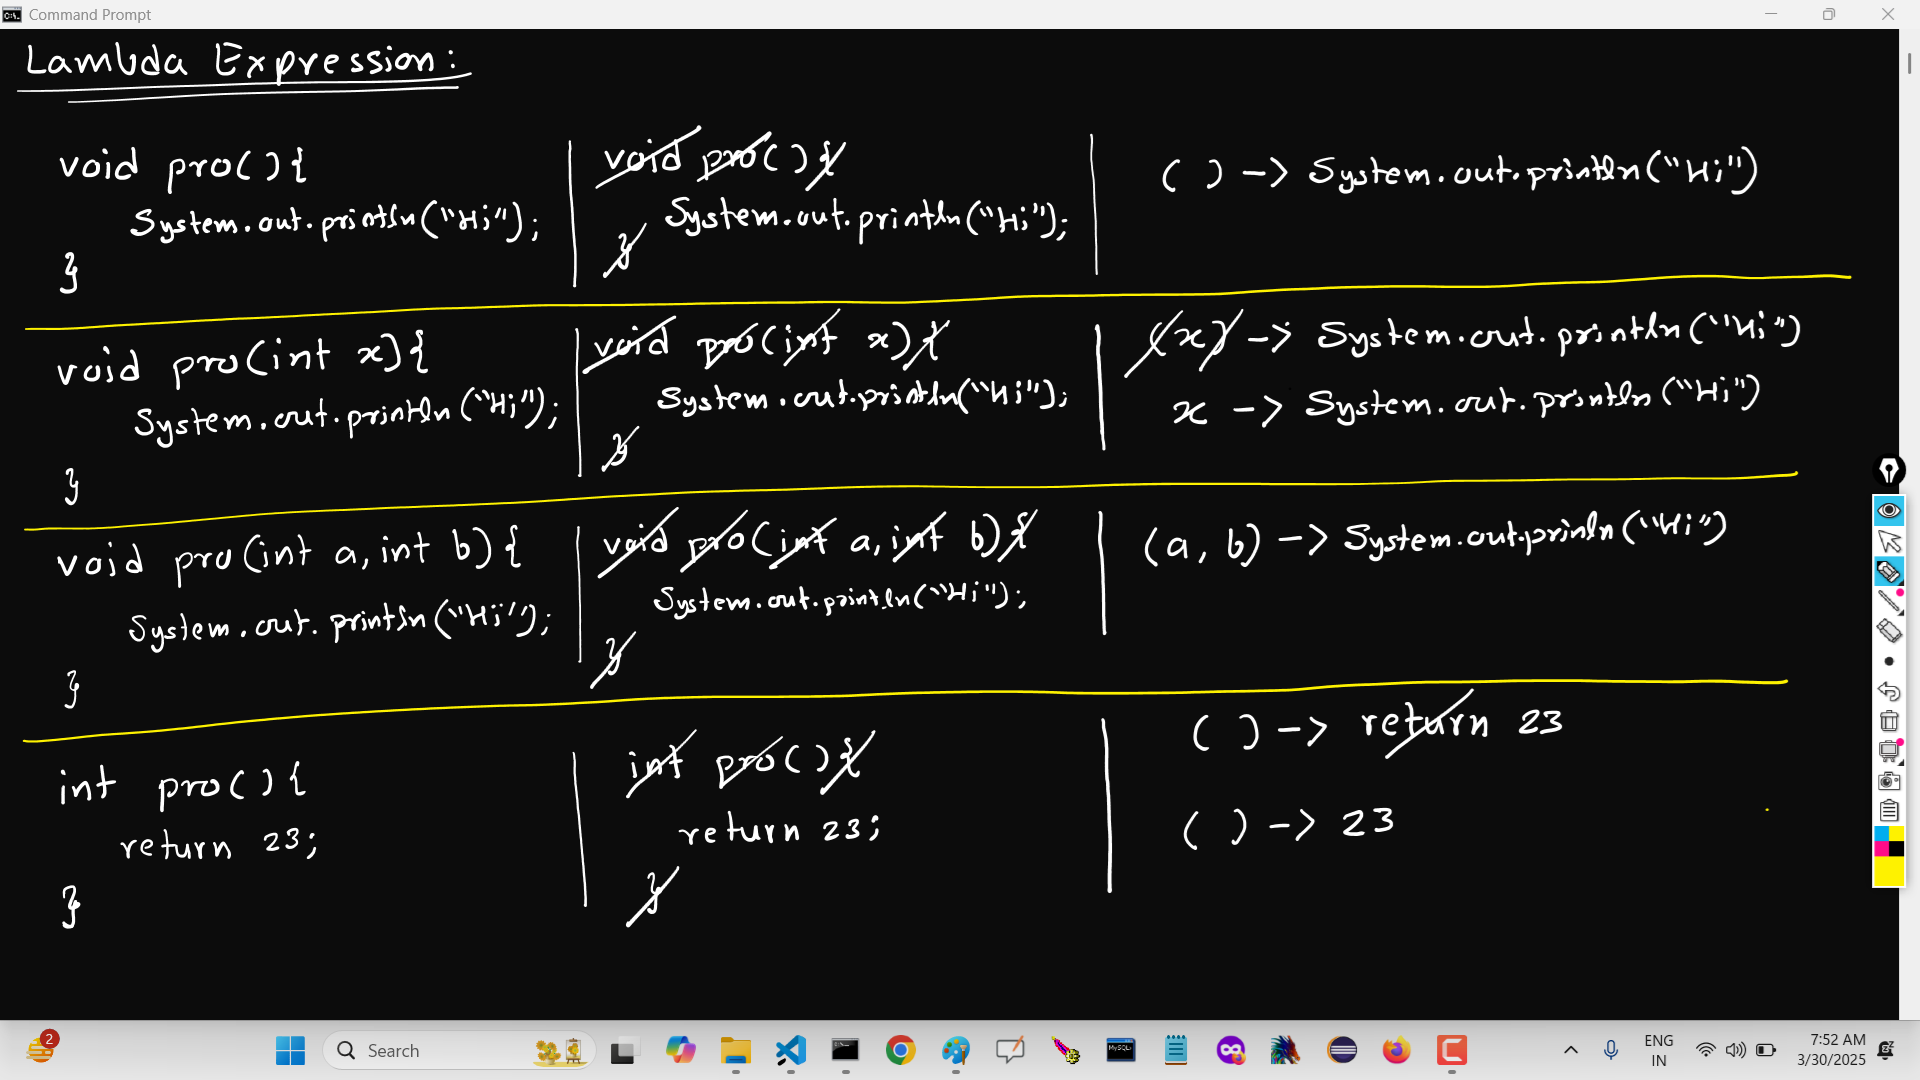 Command Prompt
Lambda Expression:
void pro(){
System.out.println("Hi");
}
void pro(){
System.out.println("Hi");
}
( ) -> System.out.println("Hi")
void pro(int x){
System.out.println("Hi");
}
void pro(int x){
System.out.println("Hi");
}
(x) -> System.out.println("Hi")
x -> System.out.println("Hi")
void pro(int a, int b){
System.out.println("Hi");
}
void pro(int a, int b){
System.out.println("Hi");
}
(a, b) -> System.out.prinln("Hi")
int pro(){
return 23;
}
int pro(){
return 23;
}
( ) -> return 23
( ) -> 23
2
Search
MySQL
ENG
IN
7:52 AM
3/30/2025